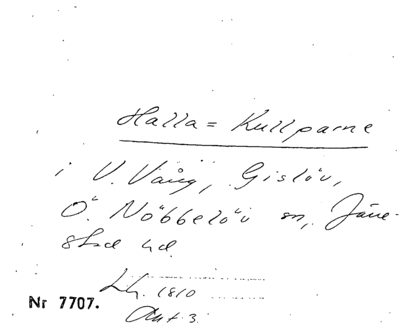 Halla = Kullparne
i V. Vång, Gislöv,
Ö. Nöbbelöv sn, Järre-
stad hd.
Lh. 1810
Akt 3.
Nr 7707.